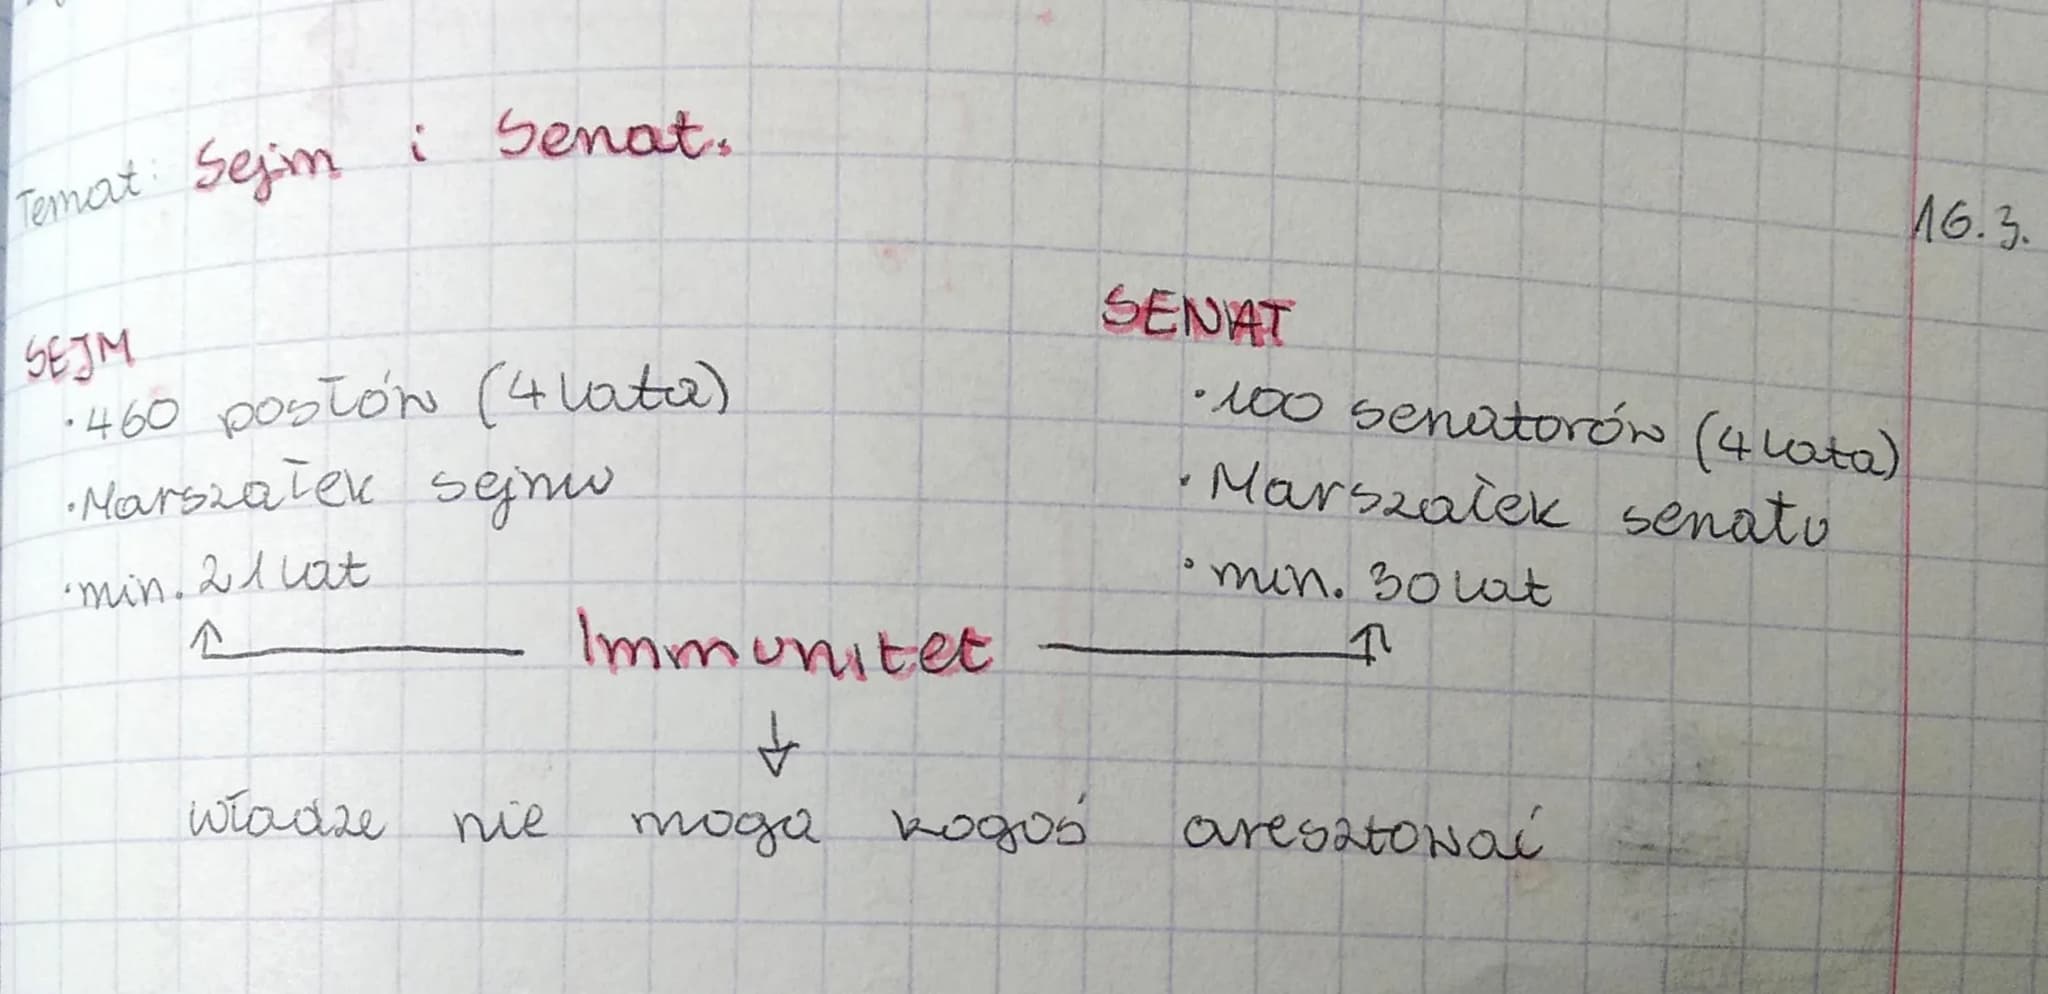 Temat: Sejm i Senat.
16.3.
SEJM
·460 posłów (4 lata)
·Marszałek sejmu
·min. 21 lat
SENAT
·100 senatorów (4 lata)
·Marszałek senatu
·min. 30 lat
Immunitet
władze nie moga kogoś aresztować